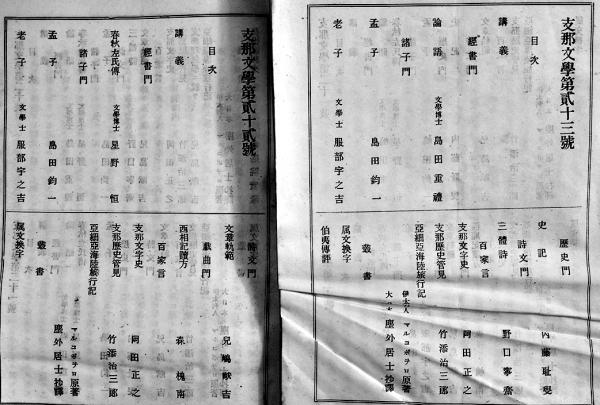 支那文學第貳十三號
目次
講義
經書門
論語 文學博士 島田重禮
諸子門
孟子 島田鈞一
老子 文學士 服部宇之吉
歷史門
史記 內藤耻叟
詩文門
三體詩 野口寧齋
百家言
支那文字史 岡田正之
支那歷史管見 竹添治三郎
亞細亞海陸旅行記 伊太人 マルコポーロ原著
大日本 塵外居士抄譯
叢書
屬文換字
伯夷傳評
支那文學第貳十貳號
目次
講義
經書門
春秋左氏傳 文學博士 星野恒
諸子門
孟子 島田鈞一
老子 文學士 服部宇之吉
詩文門
文章軌範 兒嶋獻吉
戲曲門
西相記讀方 森槐南
百家言
支那文字史 岡田正之
支那歷史管見 竹添治三郎
亞細亞海陸旅行記 マルコポーロ原著
塵外居士抄譯
叢書
屬文換字